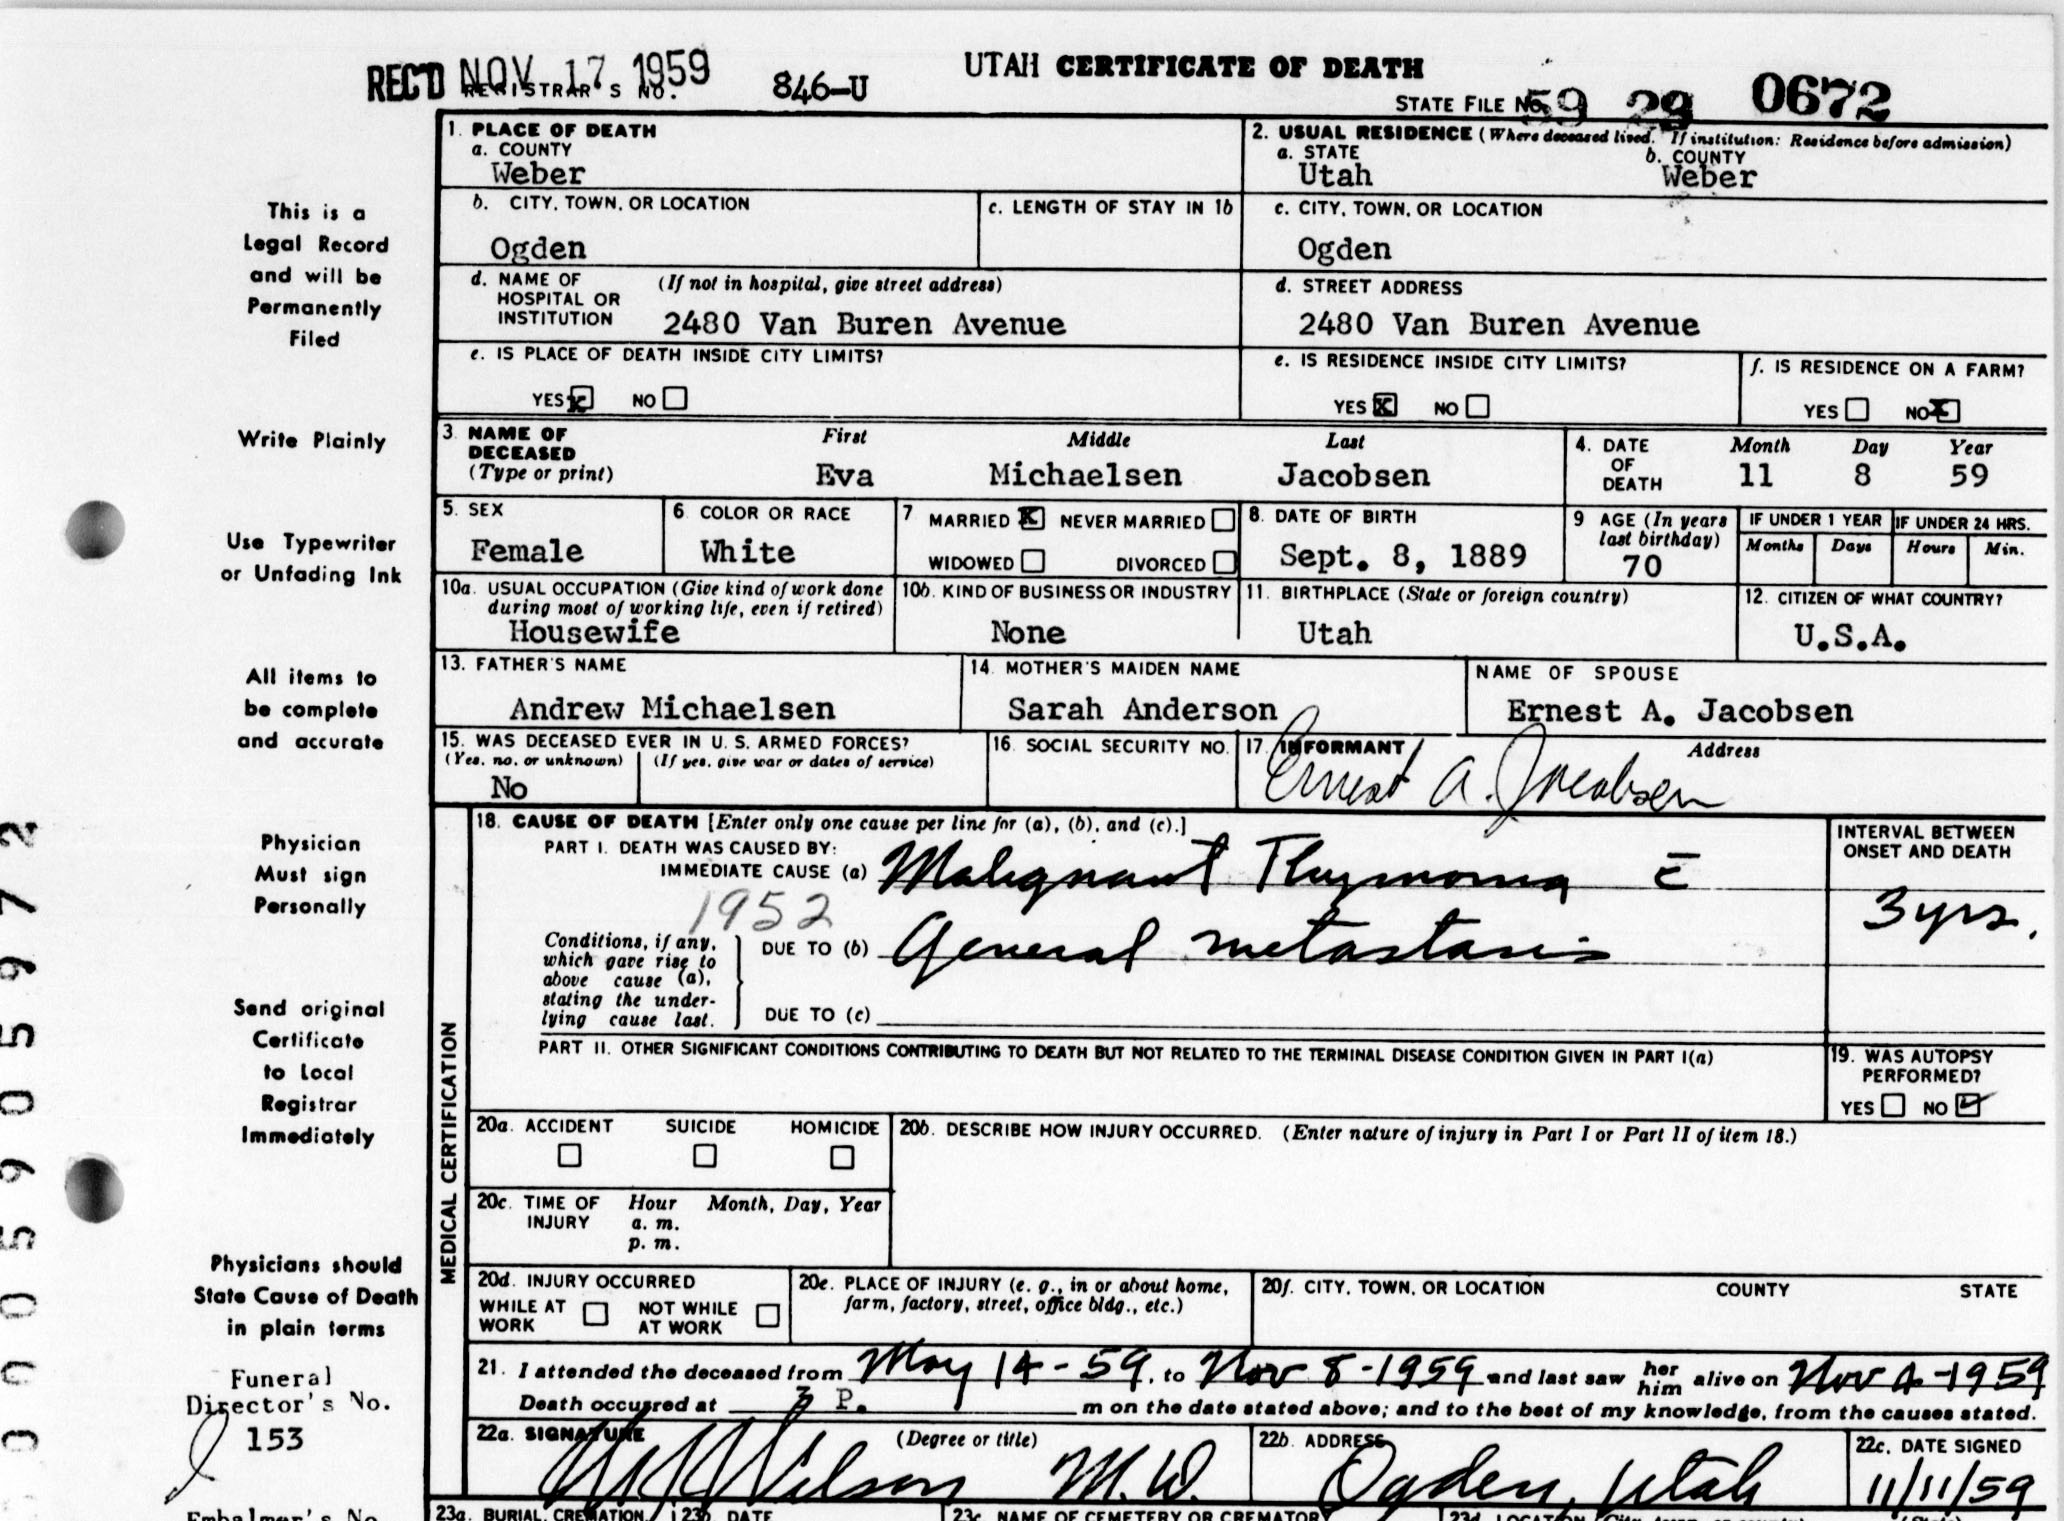 REC'D NOV 17 1959
REGISTRAR'S NO. 846-U
UTAH CERTIFICATE OF DEATH
STATE FILE NO. 59 29 0672
1. PLACE OF DEATH
a. COUNTY
Weber
2. USUAL RESIDENCE (Where deceased lived. If institution: Residence before admission)
a. STATE b. COUNTY
Utah Weber
b. CITY, TOWN, OR LOCATION
Ogden
c. LENGTH OF STAY IN 1b
c. CITY, TOWN, OR LOCATION
Ogden
d. NAME OF HOSPITAL OR INSTITUTION (If not in hospital, give street address)
2480 Van Buren Avenue
d. STREET ADDRESS
2480 Van Buren Avenue
e. IS PLACE OF DEATH INSIDE CITY LIMITS?
YES X NO
e. IS RESIDENCE INSIDE CITY LIMITS?
YES X NO
f. IS RESIDENCE ON A FARM?
YES NO X
3. NAME OF DECEASED (Type or print)
First Middle Last
Eva Michaelsen Jacobsen
4. DATE OF DEATH
Month Day Year
11 8 59
5. SEX
Female
6. COLOR OR RACE
White
7 MARRIED X NEVER MARRIED
WIDOWED DIVORCED
8. DATE OF BIRTH
Sept. 8, 1889
9 AGE (In years last birthday)
70
IF UNDER 1 YEAR
Months Days
IF UNDER 24 HRS.
Hours Min.
10a. USUAL OCCUPATION (Give kind of work done
during most of working life, even if retired)
Housewife
10b. KIND OF BUSINESS OR INDUSTRY
None
11. BIRTHPLACE (State or foreign country)
Utah
12. CITIZEN OF WHAT COUNTRY?
U.S.A.
13. FATHER'S NAME
Andrew Michaelsen
14. MOTHER'S MAIDEN NAME
Sarah Anderson
NAME OF SPOUSE
Ernest A. Jacobsen
15. WAS DECEASED EVER IN U.S. ARMED FORCES?
(Yes, no, or unknown) (If yes, give war or dates of service)
No
16. SOCIAL SECURITY NO.
17. INFORMANT Address
Ernest A. Jacobsen
MEDICAL CERTIFICATION
18. CAUSE OF DEATH [Enter only one cause per line for (a), (b), and (c).]
PART I. DEATH WAS CAUSED BY:
IMMEDIATE CAUSE (a) Malignant Thymoma c̄
1952
Conditions, if any,
which gave rise to
above cause (a),
stating the under-
lying cause last.
DUE TO (b) General metastasis
DUE TO (c)
INTERVAL BETWEEN
ONSET AND DEATH
3 yrs.
PART II. OTHER SIGNIFICANT CONDITIONS CONTRIBUTING TO DEATH BUT NOT RELATED TO THE TERMINAL DISEASE CONDITION GIVEN IN PART I(a)
19. WAS AUTOPSY
PERFORMED?
YES NO ✓
20a. ACCIDENT SUICIDE HOMICIDE
20b. DESCRIBE HOW INJURY OCCURRED. (Enter nature of injury in Part I or Part II of item 18.)
20c. TIME OF INJURY
Hour Month, Day, Year
a. m.
p. m.
20d. INJURY OCCURRED
WHILE AT WORK NOT WHILE AT WORK
20e. PLACE OF INJURY (e. g., in or about home,
farm, factory, street, office bldg., etc.)
20f. CITY, TOWN, OR LOCATION COUNTY STATE
21. I attended the deceased from May 14-59, to Nov 8-1959 and last saw her him alive on Nov 4-1959
Death occurred at 3 P. m on the date stated above; and to the best of my knowledge, from the causes stated.
22a. SIGNATURE (Degree or title)
Wilson M.D.
22b. ADDRESS
Ogden, Utah
22c. DATE SIGNED
11/11/59
23a. BURIAL, CREMATION, 23b. DATE 23c. NAME OF CEMETERY OR CREMATORY 23d. LOCATION (City, town, or county) (State)
This is a
Legal Record
and will be
Permanently
Filed
Write Plainly
Use Typewriter
or Unfading Ink
All items to
be complete
and accurate
Physician
Must sign
Personally
Send original
Certificate
to Local
Registrar
Immediately
Physicians should
State Cause of Death
in plain terms
Funeral
Director's No.
153
Embalmer's No.